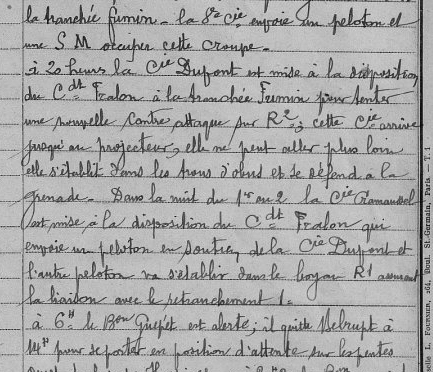 la tranchée fumin - la 8e Cie envoie un peloton et
une S M occuper cette croupe -
à 20 heures la Cie Dupont est mise à la disposition
du Cdt Fralon à la tranchée Fumin pour tenter
une nouvelle contre attaque sur R2; cette Cie arrive
jusqu'au projecteur, elle ne peut aller plus loin
elle s'établit dans les trous d'obus et se défend à la
grenade - Dans la nuit du 1er au 2 la Cie
est mise à la disposition du Cdt Fralon qui
envoie un peloton en soutien de la Cie Dupont et
l'autre peloton va s'établir dans le boyau R1 assurant
la liaison avec le retranchement 1 -
à 6H le Bon est alerté; il quitte Belrupt à
14H pour se porter en position d'attente sur les pentes
St-Germain, Paris — T. 1